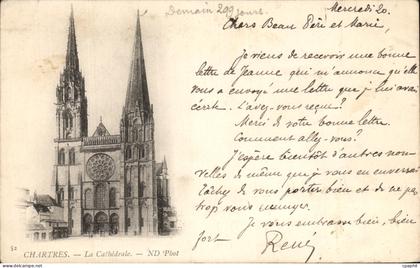 Demain 299 jours.
Mercredi 20.
Chers Beau Père et Marie,
Je viens de recevoir une bonne
lettre de Jeanne qui m'annonce qu'elle
vous a envoyé une lettre que je lui avais
écrite. L'avez-vous reçue?
Merci de votre bonne lettre.
Comment allez-vous?
J'espère bientôt d'autres nou-
velles de même que je vous en enverrai
Tâchez de vous porter bien et de ne pas
trop vous ennuyer.
Je vous embrasse bien, bien
fort
René
52
CHARTRES. — La Cathédrale. — ND Phot